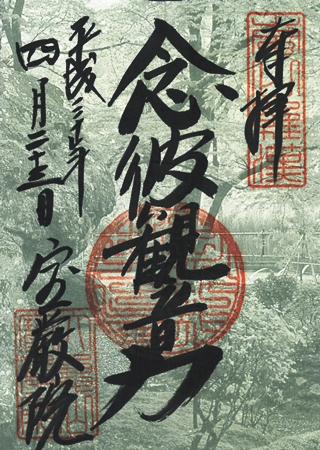 奉拝
念彼観音力
平成三十年
四月二十二日
宝厳院